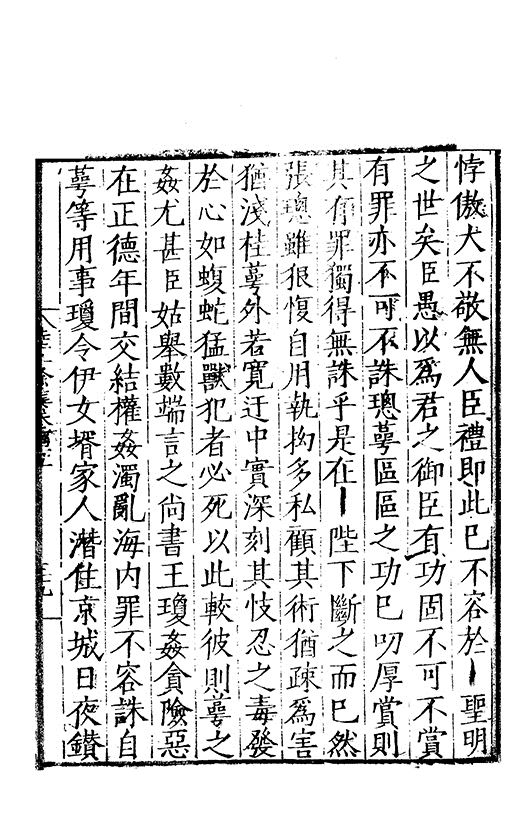 悖傲犬不敬無人臣禮即此已不容於聖明
之世矣臣愚以為君之御臣有功固不可不賞
有罪亦不可不誅璁萼區區之功已叨厚賞則
其有罪獨得無誅乎是在陛下斷之而已然
張璁雖狠愎自用執拗多私顧其術猶疎為害
猶淺桂萼外若寬迂中實深刻其忮忍之毒發
於心如蝮蛇猛獸犯者必死以此較彼則萼之
姦尤甚臣姑舉數端言之尚書王瓊姦貪險惡
在正德年間交結權姦濁亂海内罪不容誅自
萼等用事瓊令伊女壻家人潛住京城日夜鑽